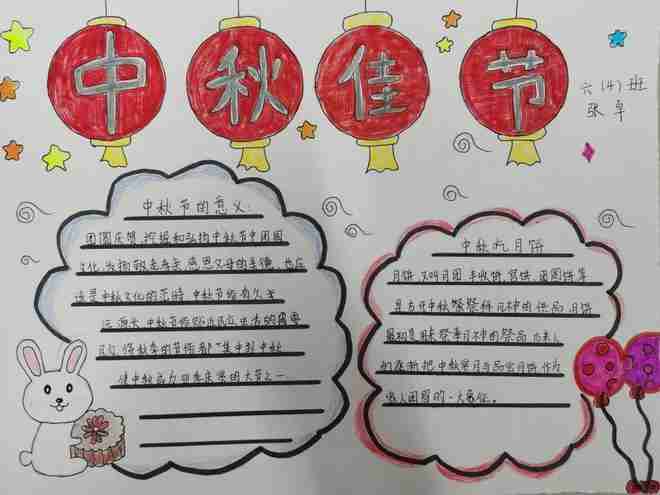 中秋佳节
六(4)班
张卓
中秋节的意义:
团圆庆贺,挖掘和弘扬中秋节中团圆
文化,发扬敬老孝亲,感恩父母的美德,也应
该是中秋文化的范畴。中秋节的有久多
远源长,中秋节的
的节俗都"集中到中秋
使中秋成为
的大节之一
中秋和月饼
月饼,又叫月团、丰收饼、宫饼、团圆饼等
是古代中秋祭拜月神的供品,月饼
最初是用来祭奉月神的祭品,后来人
们逐渐把中秋赏月与品尝月饼,作为
家人团圆的一大象征。